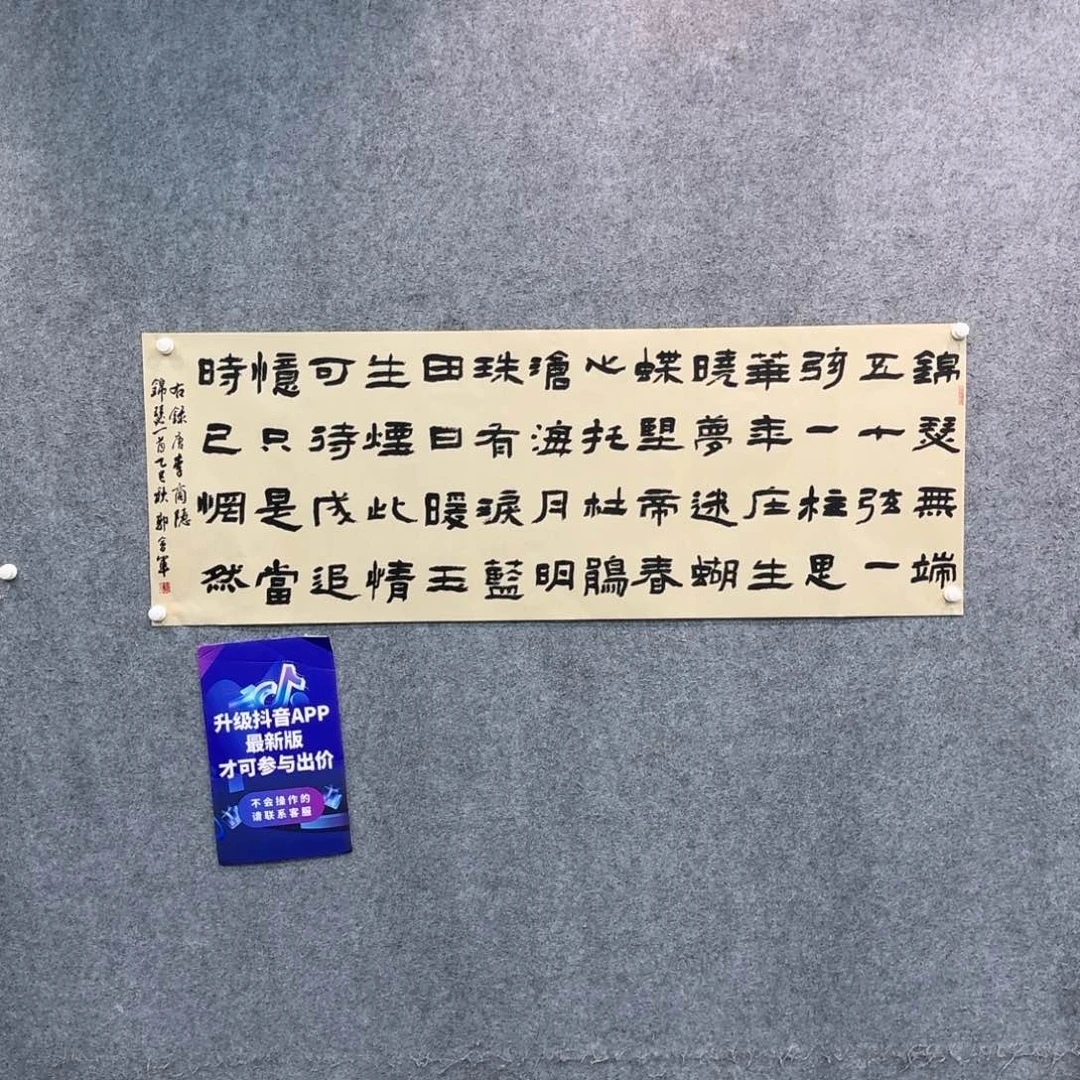 錦瑟無端
五十弦一
弦一柱思
華年庄生
曉夢迷蝴
蝶朢帝春
心托杜鵑
滄海月明
珠有淚藍
田日暖玉
生煙此情
可待成追
憶只是當
時已惘然
右錄唐李商隱
錦瑟一首乙巳秋
升级抖音APP
最新版
才可参与出价
不会操作的
请联系客服